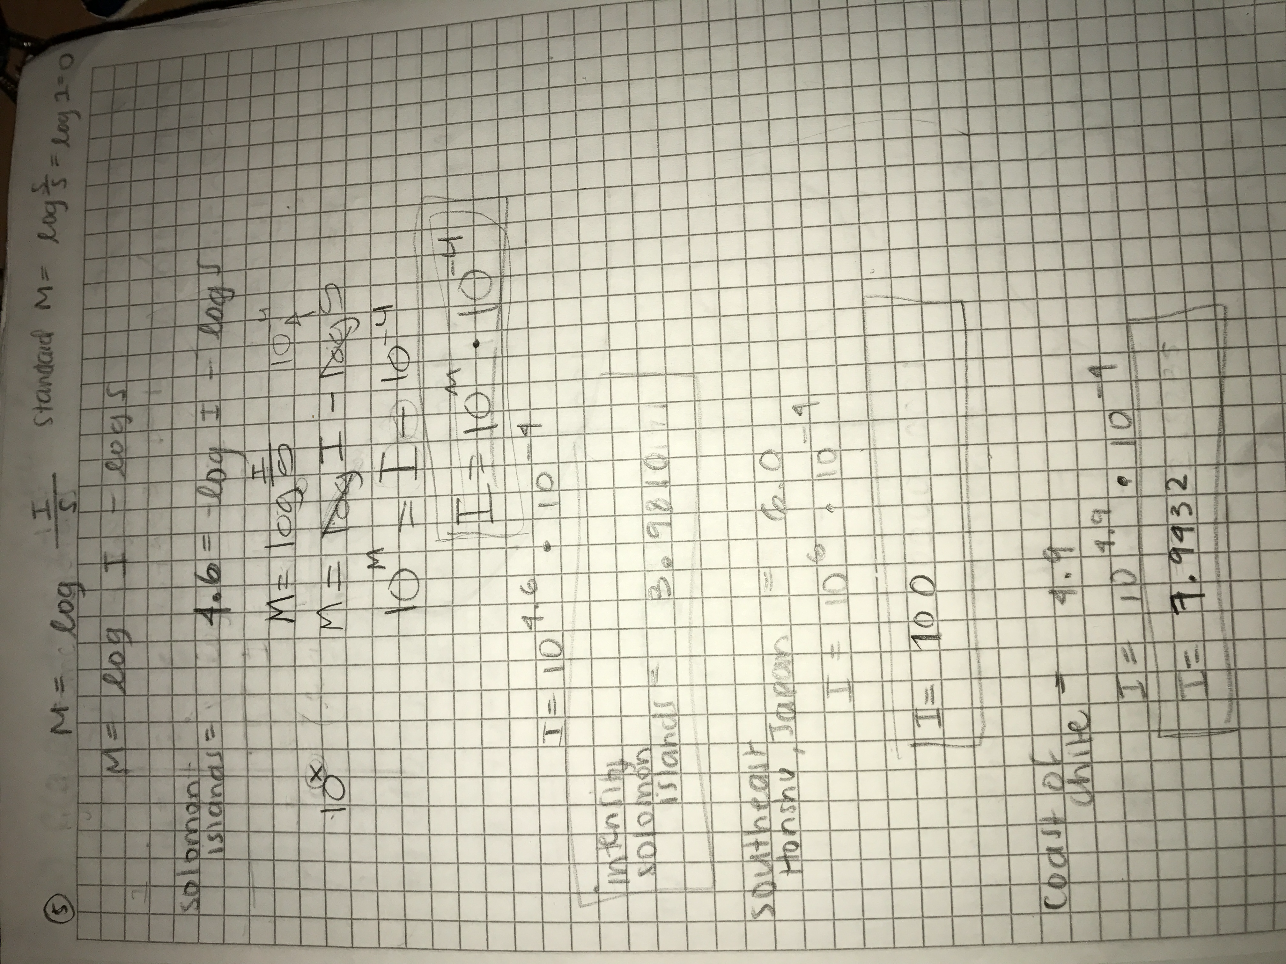 ⑤ M = log I/S standard M = log S/S = log 1 = 0
M = log I - log S
Solomon
Islands = 4.6 = log I - log S
M = log I/S 10^-4
10^x M = log I - log S
10^M = I - 10^-4
I = 10^M • 10^-4
I = 10^4.6 • 10^-4
Intensity
Solomon
Islands = 3.9810717
Southeast
Honshu, Japan = 6.0
I = 10^6 • 10^-4
I = 100
Coast of
Chile = 4.9
I = 10^4.9 • 10^-4
I = 7.9432